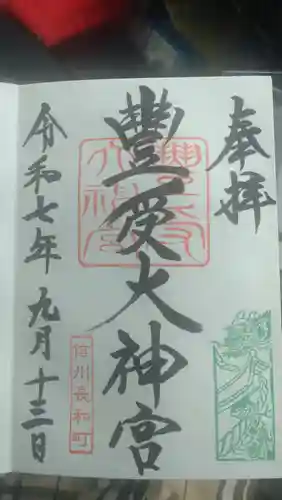 奉拝
豊受大神宮
信州長和町
令和七年九月十三日